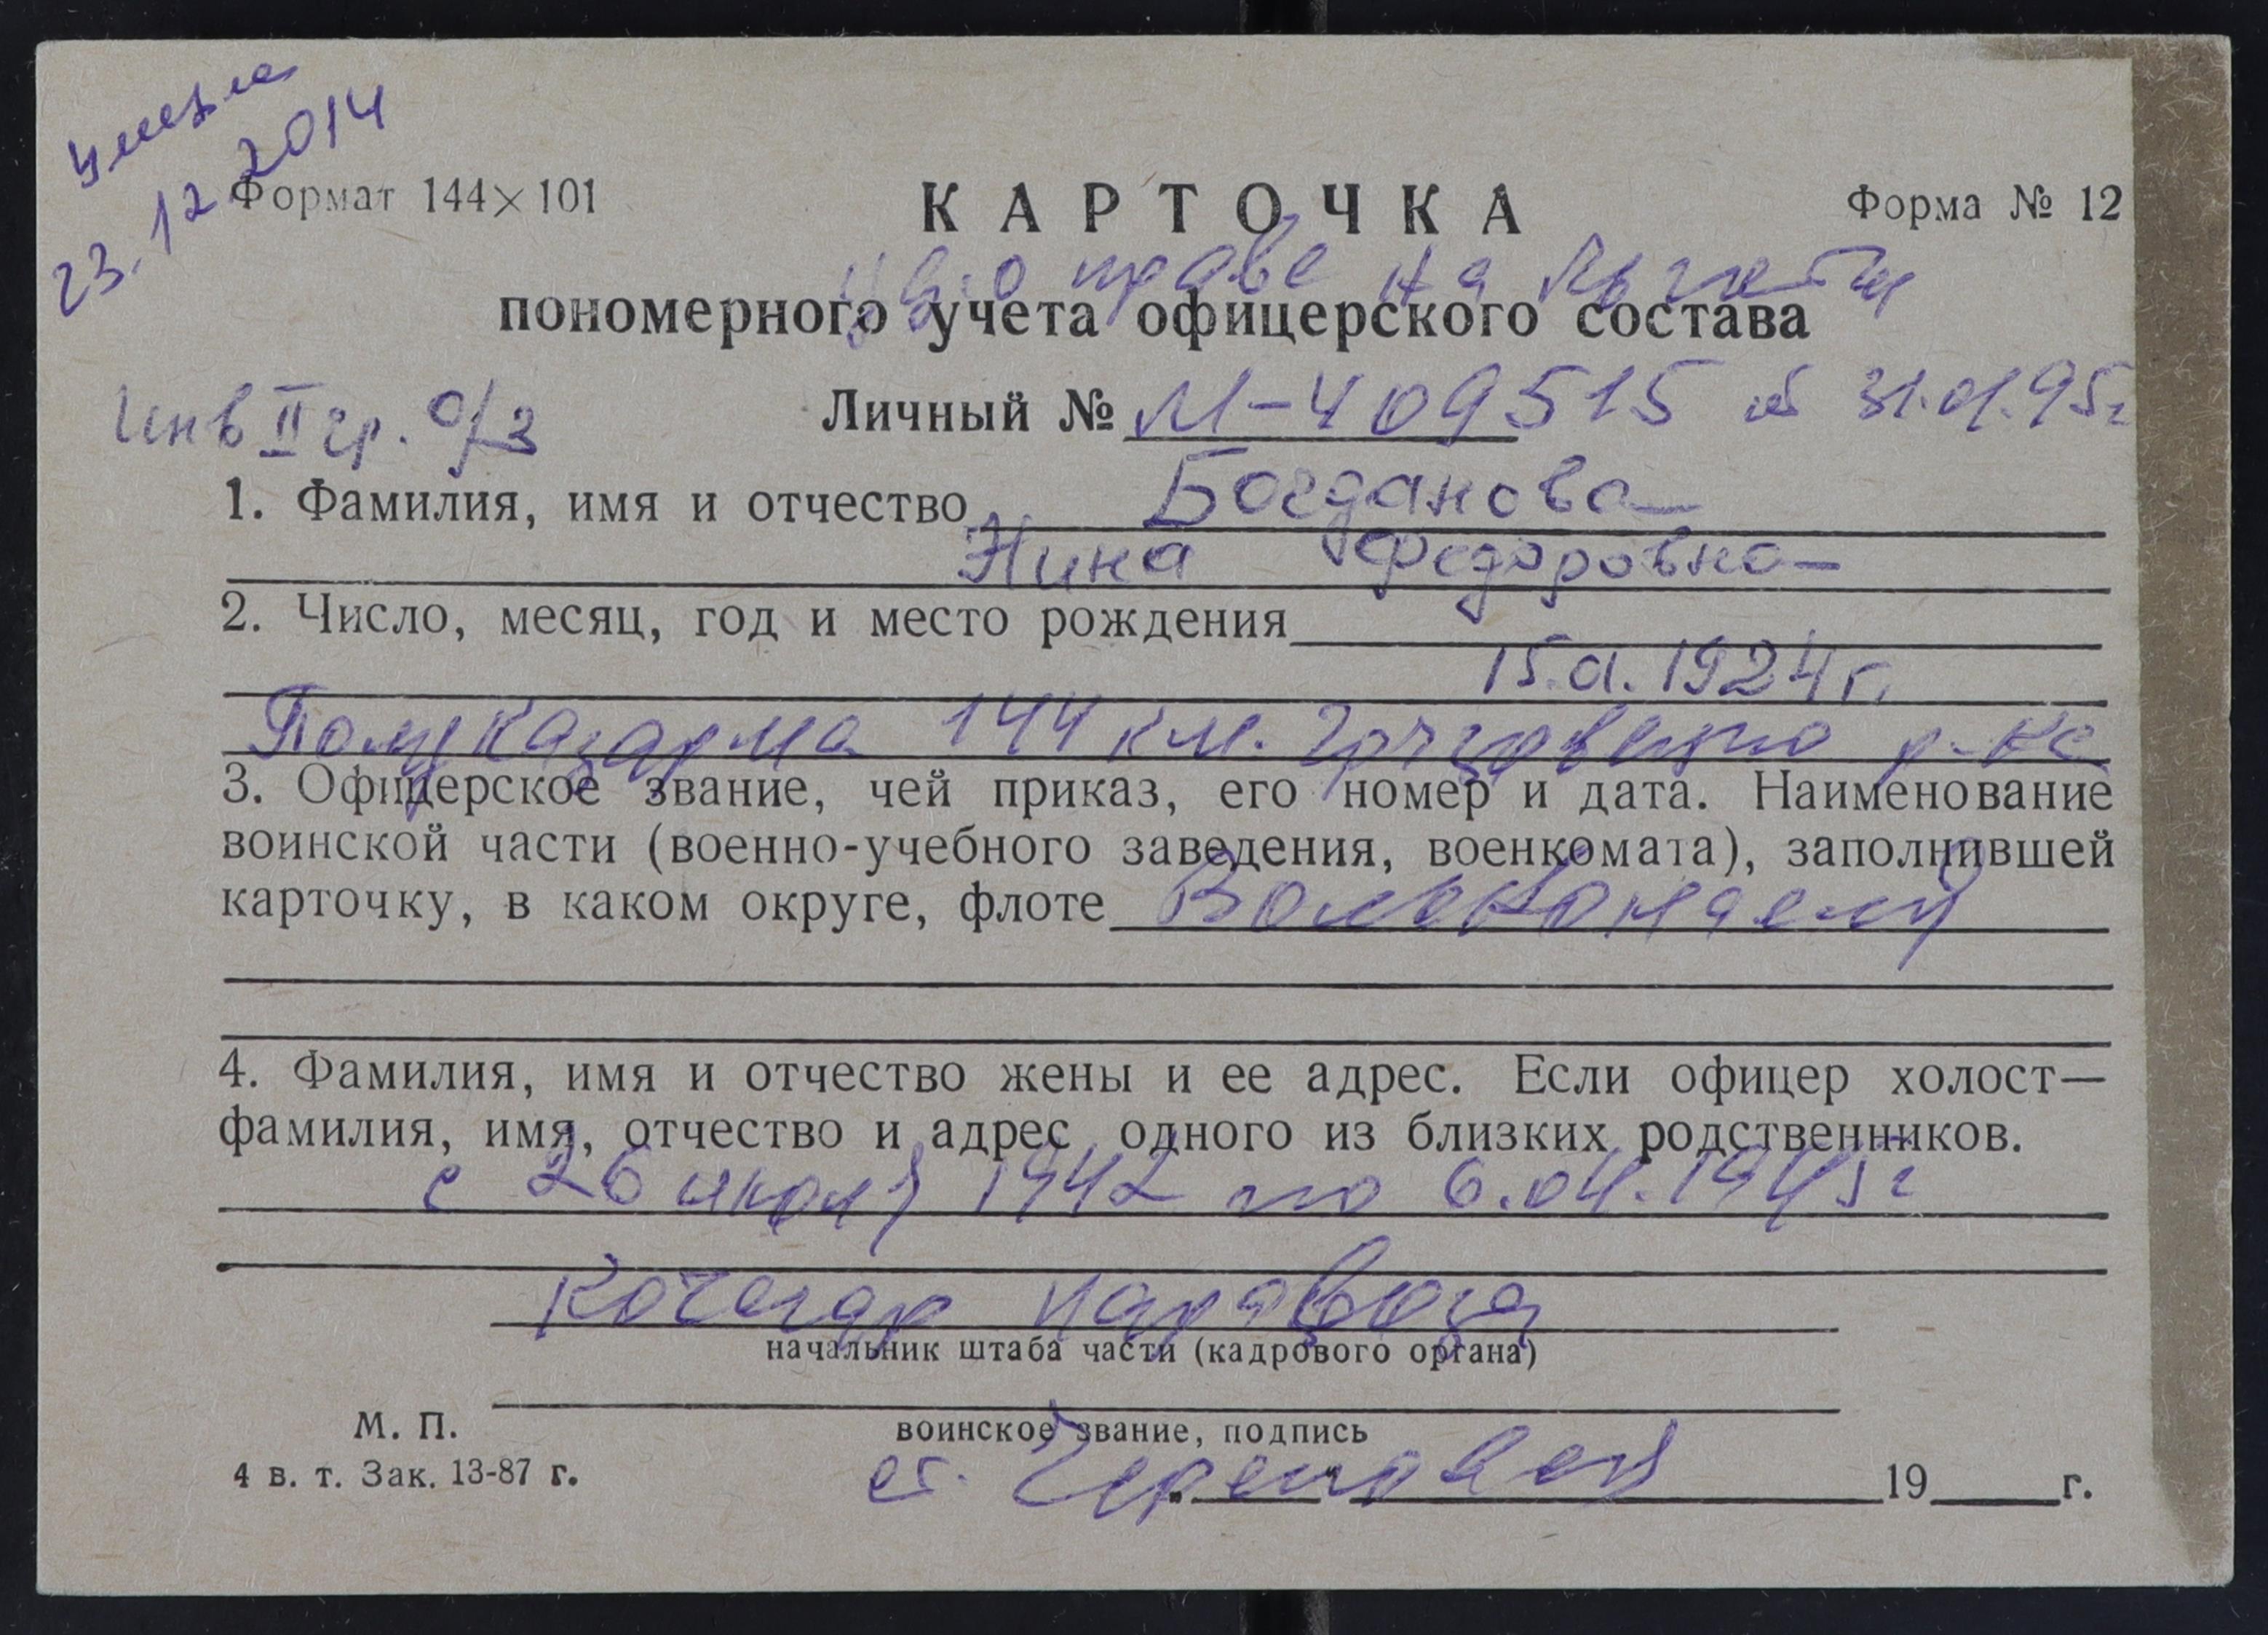 умерла
23.12.2014
Формат 144×101
КАРТОЧКА
Форма № 12
о праве на льготы
пономерного учета офицерского состава
Инв II гр. о/з
Личный № М-409515 от 31.01.95г
1. Фамилия, имя и отчество Богданова
Нина Федоровна
2. Число, месяц, год и место рождения
15.01.1924 г.
Полуказарма 144 км. р-на
3. Офицерское звание, чей приказ, его номер и дата. Наименование
воинской части (военно-учебного заведения, военкомата), заполнившей
карточку, в каком округе, флоте
4. Фамилия, имя и отчество жены и ее адрес. Если офицер холост—
фамилия, имя, отчество и адрес одного из близких родственников.
с 26 июля 1942 по 6.04.1945г
Кочегар паровоза
начальник штаба части (кадрового органа)
М. П.
воинское звание, подпись
4 в. т. Зак. 13-87 г.
ст. Череповец
„ 19 г.